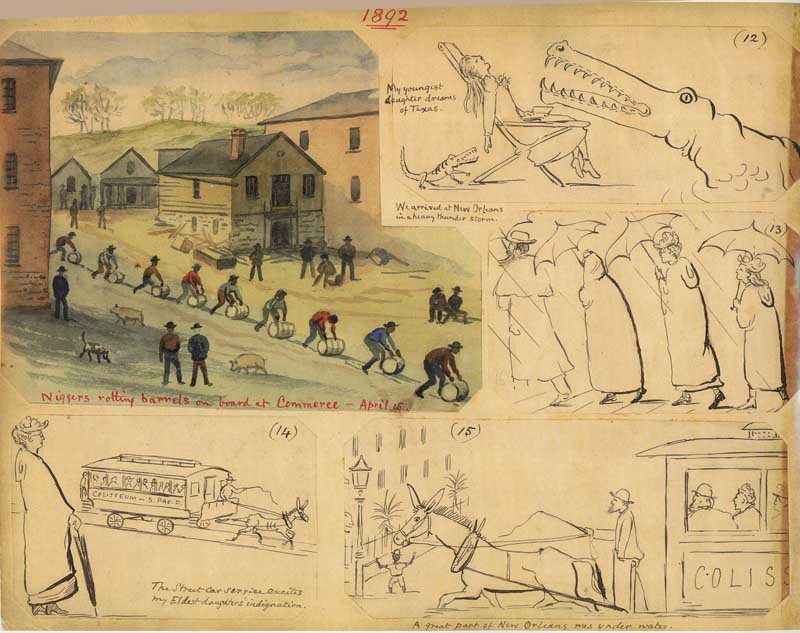 1892
(12)
My youngest
daughter dreams
of Texas.
We arrived at New Orleans
in a heavy thunder storm.
(13)
Niggers rolling barrels on board at Commerce – April
(14)
COLISSEUM – S. PAC. D.
The Street car service excites
my Eldest daughter's indignation.
(15)
COLISS
A great part of New Orleans was under water.